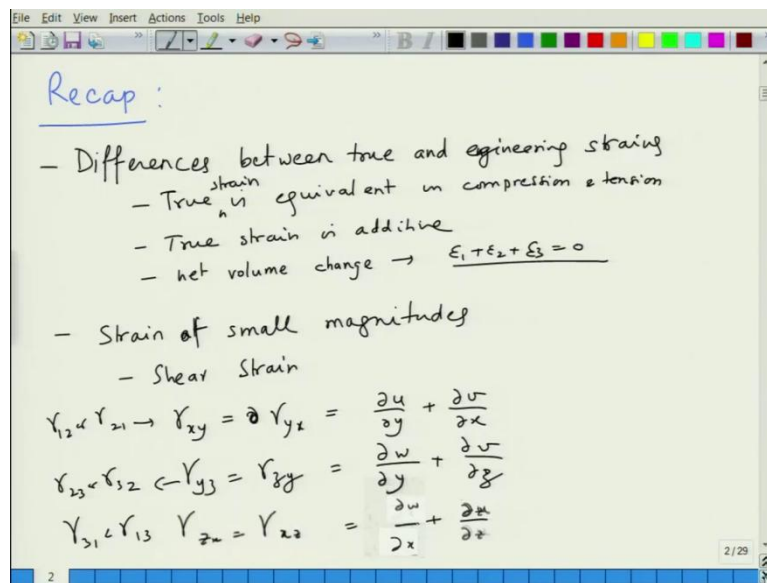 File Edit View Insert Actions Tools Help
B I
Recap :
- Differences between true and egineering strains
strain
- True is equivalent in compression & tension
- True strain is additive
- net volume change → ε₁+ε₂+ε₃ = 0
- Strain of small magnitudes
- Shear Strain
γ₁₂ & γ₂₁ → γxy = γyx = ∂u/∂y + ∂v/∂x
γ₂₃ & γ₃₂ ← γyz = γzy = ∂w/∂y + ∂v/∂z
γ₃₁ & γ₁₃ γzx = γxz = ∂w/∂x + ∂u/∂z
2/29
2